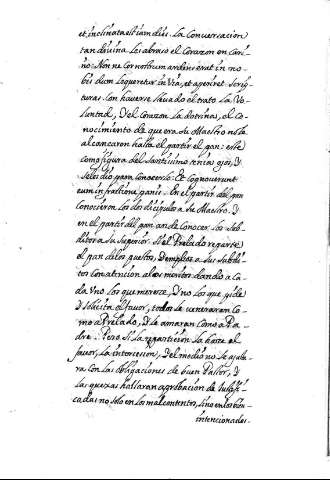 et inclinata est iam dies. La Conuersacion
tan diuina les abraso el Corazon en Cari-
ño: Nonne Cor nostrum ardens erat in no-
bis dum loqueretur in Via, et aperiret Scrip-
turas. Con hauerse lleuado el trato la Vo-
luntad, y el Corazon la dotrina, el Co-
nocimiento de que era su Maestro no la
alcancaron hasta el partir el pan: este
como figura del Santissimo tenia ojos, y
se los dio para Conocerlo: Et Cognouerunt
eum in fractione panis. En el partir del pan
Conocieron los dos dicipulos a su Maestro. Y
en el partir del pan an de Conocer los Sub-
ditos a su Superior. Si el Prelado reparte
el pan de los puestos, y empleos a sus subdi-
tos Con atencion a los meritos dando a Ca-
da Vno lo que merece, y no lo que pide
o solicita el fauor, todos se veneraran Co-
mo a Prelado, y le amaran como a Pa-
dre. Pero si la reparticion la hace el
fauor, la intercesion, y el medio no se ajusta
ra Con las obligaciones de buen Pastor, y
las quexas hallaran aprobacion de Justifi-
cadas no solo en los mal contentos, sino en los bien
intencionados.